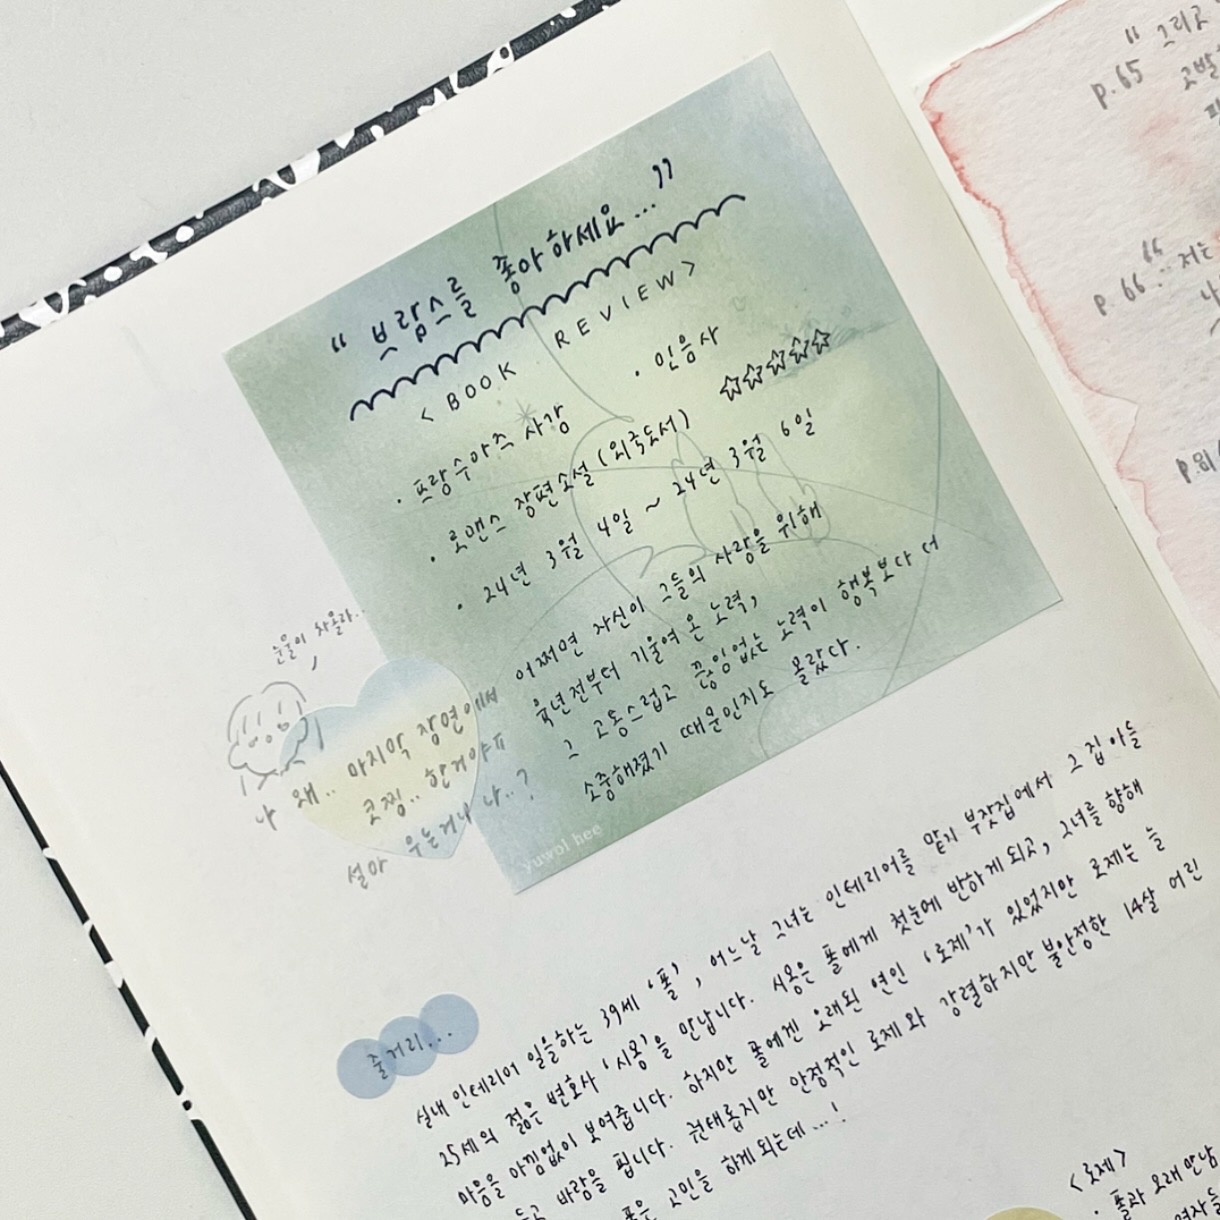 “ 브람스를 좋아하세요... ”
< BOOK REVIEW >
· 프랑수아즈 사강 · 민음사
· 로맨스 장편소설 (외국도서) ☆☆☆☆☆
· 24년 3월 4일 ~ 24년 3월 6일
어쩌면 자신이 그들의 사랑을 위해
육년전부터 기울여 온 노력,
그 고통스럽고 끊임없는 노력이 행복보다 더
소중해졌기 때문인지도 몰랐다.
yuwol hee
눈물이 차올라..
나 왜.. 마지막 장면에서
코찡.. 한거야ㅠ
설마 우는거니 나..?
줄거리...
실내 인테리어 일을하는 39세 ‘폴’, 어느날 그녀는 인테리어를 맡게 부잣집에서 그 집 아들
25세의 젊은 변호사 ‘시몽’을 만납니다. 시몽은 폴에게 첫눈에 반하게 되고, 그녀를 향해
마음을 아낌없이 보여줍니다. 하지만 폴에겐 오래된 연인 ‘로제’가 있었지만 로제는 늘
바람을 핍니다. 권태롭지만 안정적인 로제와 강렬하지만 불안정한 14살 어린
폴은 고민을 하게 되는데...!
<로제>
· 폴과 오래 만남
여자들
“ 그리고
p.65
“
p. 66 저는
나
p.